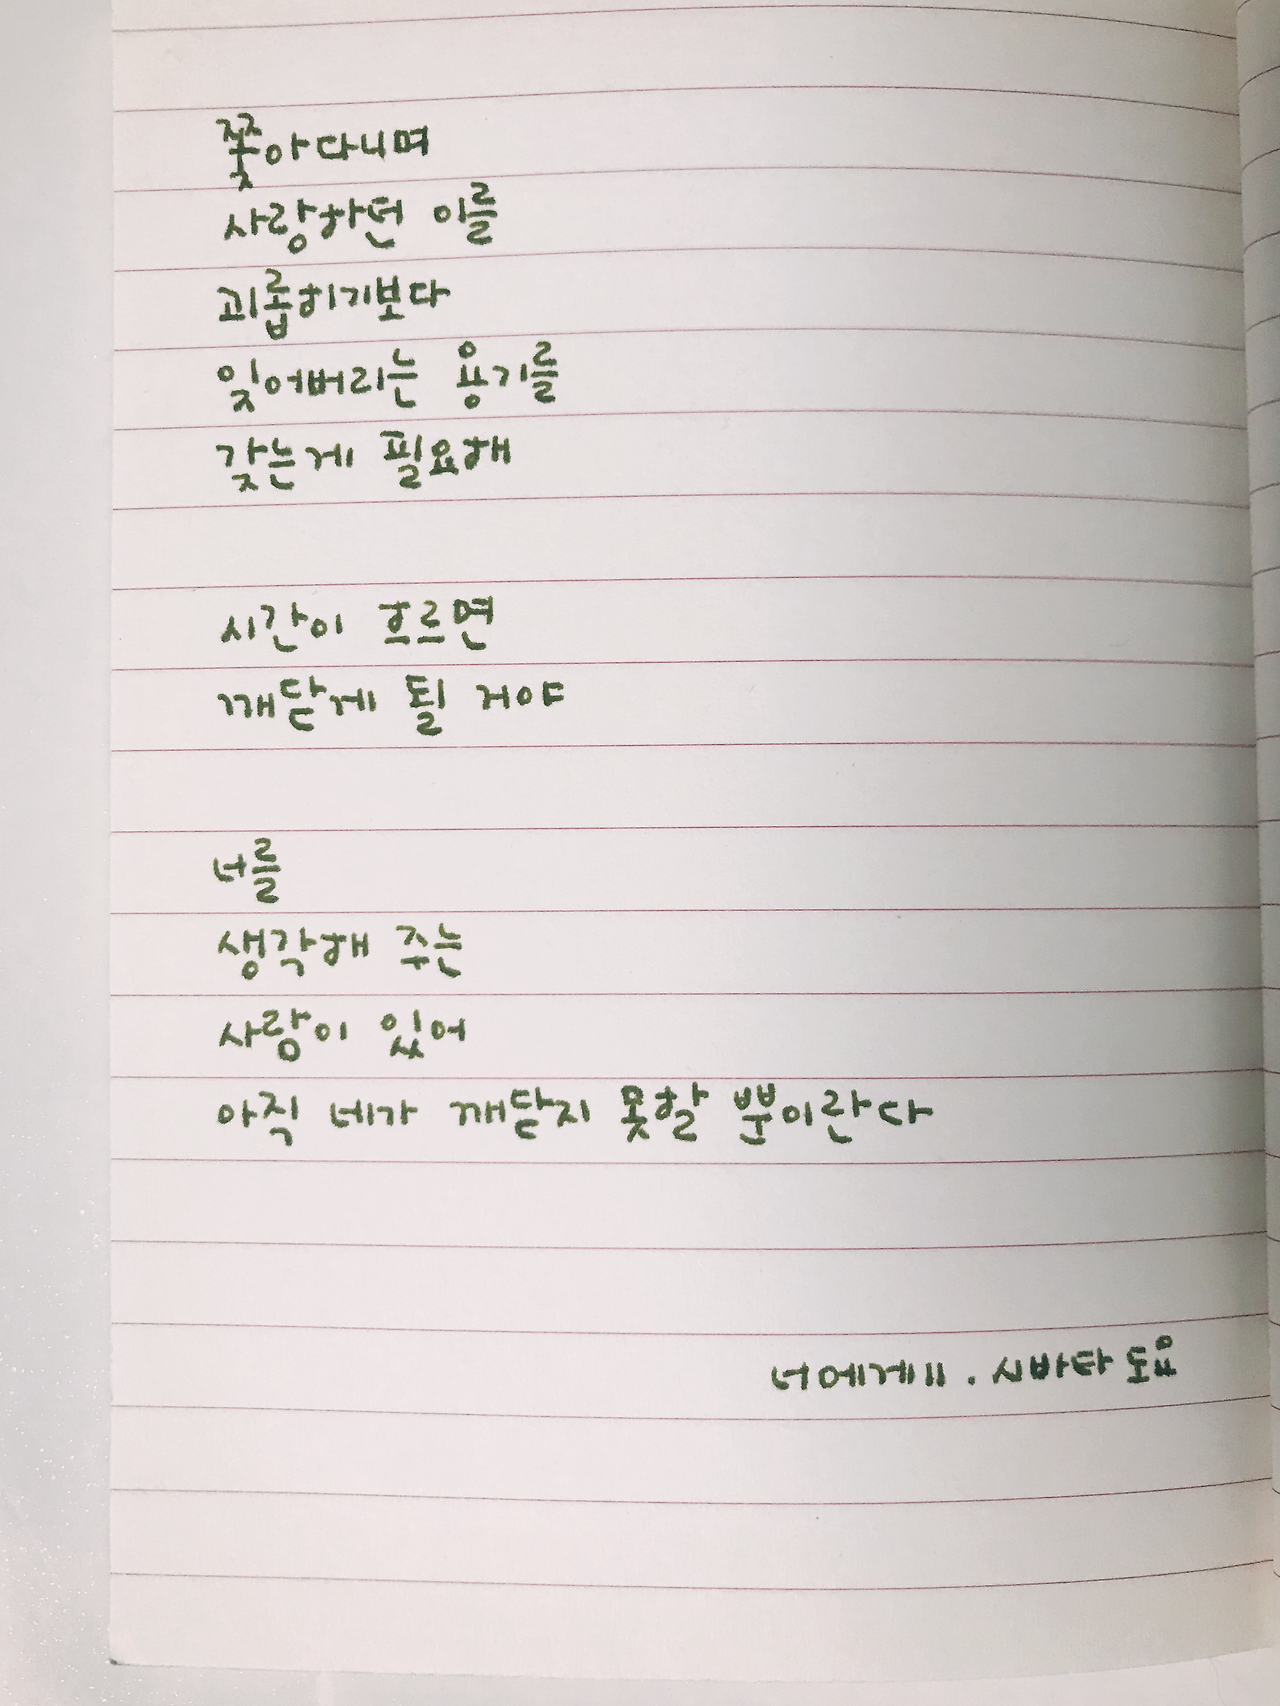 쫓아다니며
사랑하던 이를
괴롭히기보다
잊어버리는 용기를
갖는게 필요해
시간이 흐르면
깨닫게 될 거야
너를
생각해 주는
사람이 있어
아직 네가 깨닫지 못할 뿐이란다
너에게 II . 시바타 도요